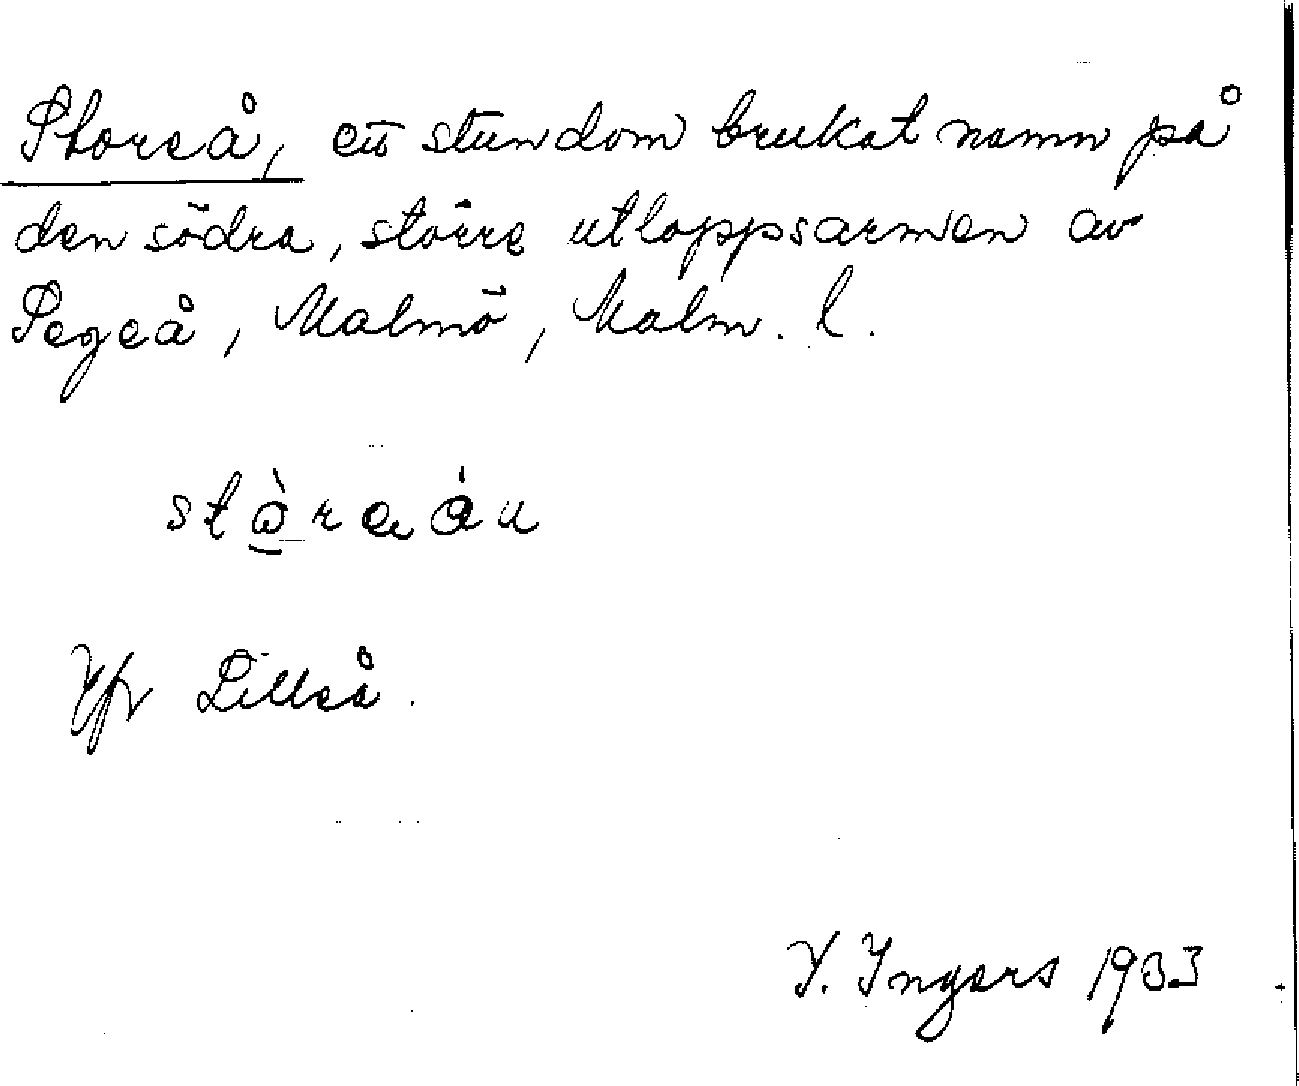 Storeå, ett stundom brukat namn på
den södra, större utloppsarmen av
Segeå, Malmö, Malm. l.
Jfr Lilleå.
I. Ingers 1933